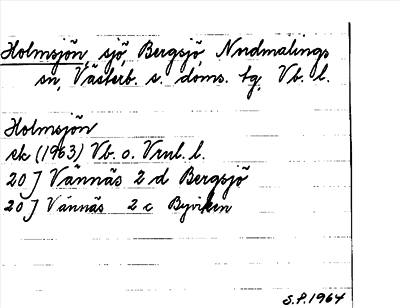 Holmsjön, sjö, Bergsjö, Nordmalings
sn, Västerb. s. doms. tg, Vb. l.
Holmsjön
ek (1963) Vb. o. Vrnl. l.
20 J Vännäs 2 d Bergsjö
20 J Vännäs 2 c Byviken
S.P. 1964